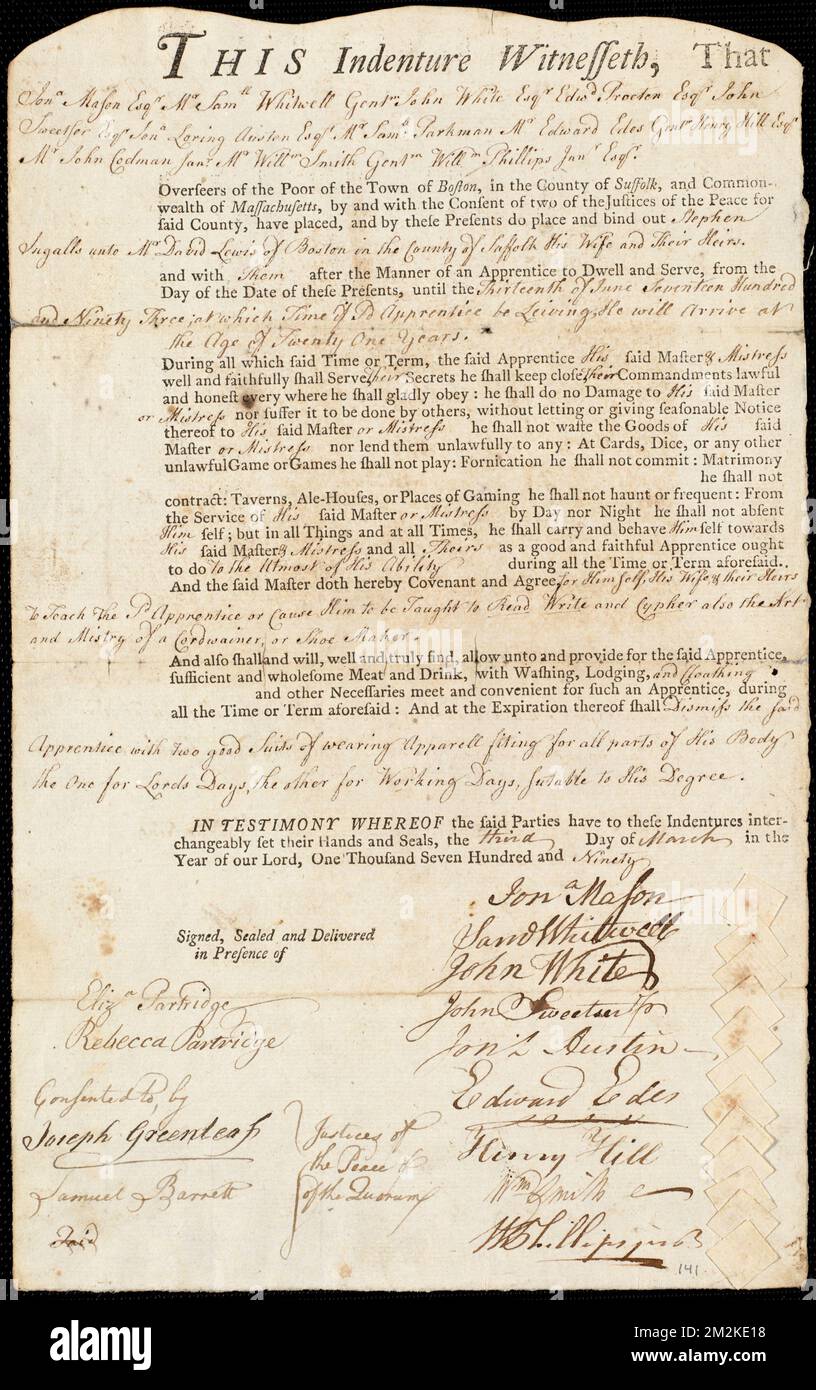 THIS Indenture Witnesseth, That
Jonª Mason Esqr Mr Samll Whitwell Gentn John White Esqr Edwd Procter Esqr John
Sweetser Esqr Jonª Loring Austin Esqr Mr Samll Parkman Mr Edward Edes Gentn Henry Hill Esqr
Mr John Codman Junr Mr Willm Smith Gentm Willm Phillips Junr Esqr.
Overseers of the Poor of the Town of Boston, in the County of Suffolk, and Common-
wealth of Massachusetts, by and with the Consent of two of the Justices of the Peace for
said County, have placed, and by these Presents do place and bind out Stephen
Ingalls unto Mr David Lewis of Boston in the County of Suffolk His Wife and Their Heirs.
and with Them after the Manner of an Apprentice to Dwell and Serve, from the
Day of the Date of these Presents, until the Thirteenth of June Seventeen Hundred
and Ninety Three; at which Time if Sd Apprentice be Leiving, He will Arrive at
the Age of Twenty One Years.
During all which said Time or Term, the said Apprentice His said Master & Mistress
well and faithfully shall Serve, their Secrets he shall keep close their Commandments lawful
and honest every where he shall gladly obey: he shall do no Damage to His said Master
or Mistress nor suffer it to be done by others, without letting or giving seasonable Notice
thereof to His said Master or Mistress he shall not waste the Goods of His said
Master or Mistress nor lend them unlawfully to any: At Cards, Dice, or any other
unlawful Game or Games he shall not play: Fornication he shall not commit: Matrimony
he shall not
contract: Taverns, Ale-Houses, or Places of Gaming he shall not haunt or frequent: From
the Service of His said Master or Mistress by Day nor Night he shall not absent
Him self; but in all Things and at all Times, he shall carry and behave Him self towards
His said Master & Mistress and all Theirs as a good and faithful Apprentice ought
to do to the Utmost of His Ability during all the Time or Term aforesaid..
And the said Master doth hereby Covenant and Agree for Himself, His Wife & their Heirs
To Teach the Sd Apprentice or Cause Him to be Taught to Read Write and Cypher also the Art
and Mistry of a Cordwainer, or Shoe Maker.
And also shall and will, well and truly find, allow unto and provide for the said Apprentice,
sufficient and wholesome Meat and Drink, with Washing, Lodging, and Cloathing
and other Necessaries meet and convenient for such an Apprentice, during
all the Time or Term aforesaid: And at the Expiration thereof shall Dismiss the said
Apprentice with two good Suits of wearing Apparell fiting for all parts of His Body
the One for Lords Days, the other for Working Days, sutable to His Degree.
IN TESTIMONY WHEREOF the said Parties have to these Indentures inter-
changeably set their Hands and Seals, the third Day of March in the
Year of our Lord, One Thousand Seven Hundred and Ninety
Jonª Mason
Signed, Sealed and Delivered
in Presence of
Saml Whitwell
John White
Elizª Partridge
Rebecca Partridge
John Sweetser Jr
Jon L Austin
Consented to, by
Joseph Greenleaf
Samuel Barrett
Justices of
the Peace &
of the Quorum
Edward Edes
Henry Hill
Wm Smith
W Phillips junr
141
alamy
Image ID: 2M2KE18
www.alamy.com